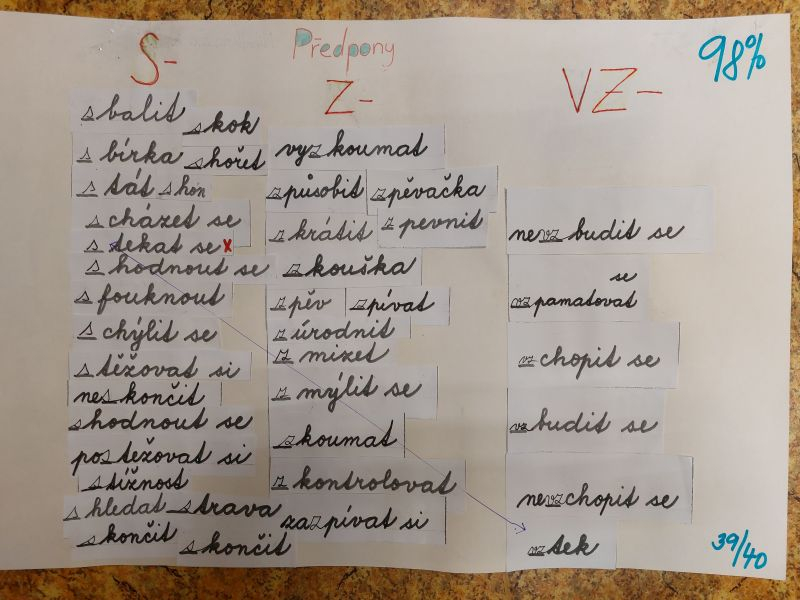 Předpony
98%
S-
sbalit
skok
sbírka
shořet
stát
shon
scházet se
stekat se x
shodnout se
sfouknout
schýlit se
stěžovat si
neskončit
shodnout se
postežovat si
stížnost
shledat
strava
skončit
skončit
Z-
vyzkoumat
způsobit
zpěvačka
zkrátit
zpevnit
zkouška
zpěv
zpívat
zúrodnit
zmizet
zmýlit se
zkoumat
zkontrolovat
zazpívat si
VZ-
nevzbudit se
se
vzpamatovat
vzchopit se
vzbudit se
nevzchopit se
vztek
39/40